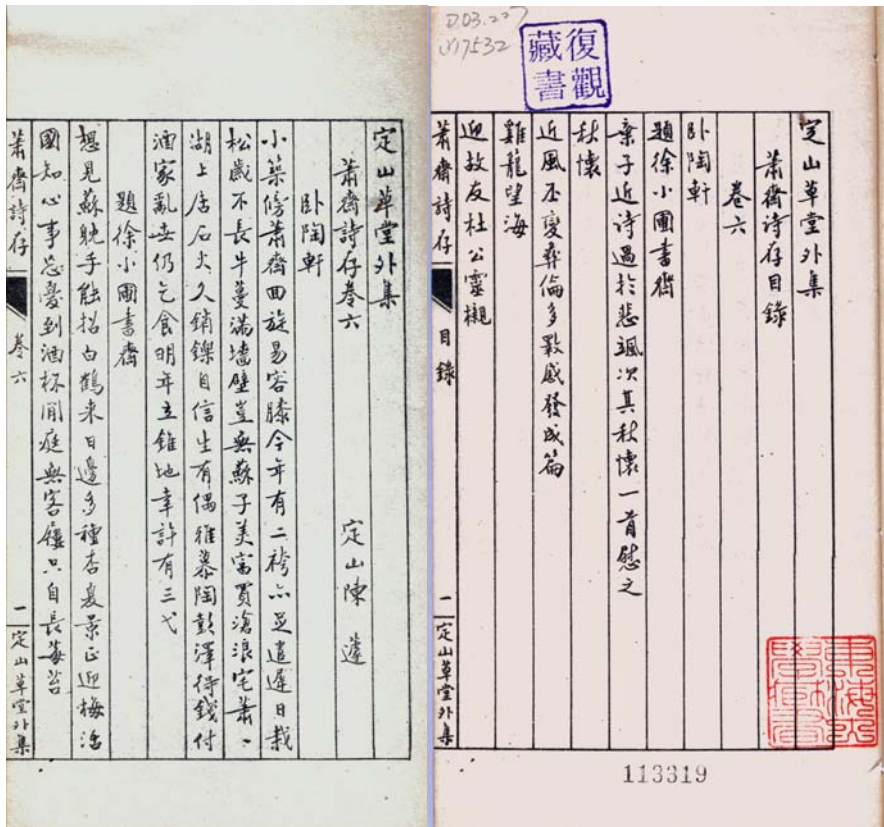 D03.227
(1)17532
復觀
藏書
定山草堂外集
蕭齋詩存目錄
卷六
臥陶軒
題徐小圃書齋
棄子近詩過於悲颯次其秋懷一首慰之
秋懷
近風丕變彝倫多斁感發成篇
雞籠望海
迎故友杜公靈櫬
蕭齋詩存 目錄 一 定山草堂外集
113319
定山草堂外集
蕭齋詩存卷六 定山陳蘧
臥陶軒
小築傍蕭齋回旋易容膝今年有二袴亦足遣遲日栽
松歲不長牛蔓滿墻壁豈無蘇子美富買滄浪宅蕭丶
湖上居石火久銷鑠自信生有偶雅慕陶彭澤得錢付
酒家亂世仍乞食明年立錐地幸許有三弋
題徐小圃書齋
想見蘇躭手能招白鶴来日邊多種杏夏景正迎梅活
國知心事忘憂到酒杯閒庭無客履只自長莓苔
蕭齋詩存 卷六 一 定山草堂外集